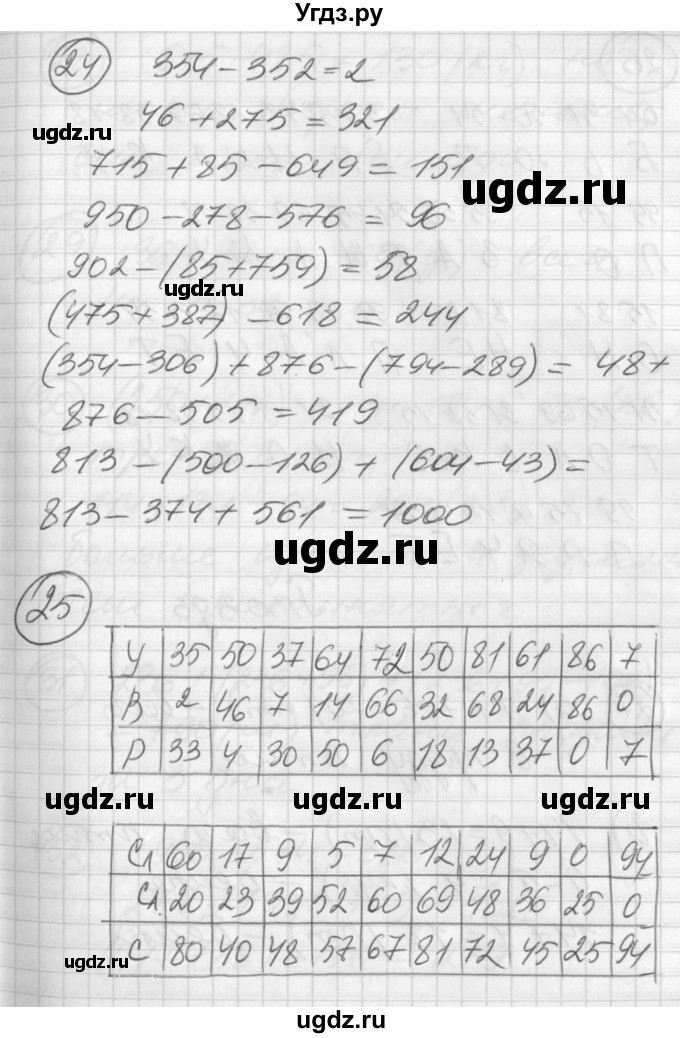 Угдз.ру
24 354-352=2
ugdz.ru 46+275=321
715+85-649=151
ugdz.ru
950-278-576=96
902-(85+759)=58
ugdz.ru
(475+387)-618=244
(354-306)+876-(794-289)=48+
876-505=419
813-(500-126)+(604-43)=
813-374+561=1000
ugdz.ru
25
У 35 50 37 64 72 50 81 61 86 7
В 2 46 7 14 66 32 68 24 86 0
Р 33 4 30 50 6 18 13 37 0 7
ugdz.ru ugdz.ru ugdz.ru
Сл 60 17 9 5 7 12 24 9 0 94
Сл. 20 23 39 52 60 69 48 36 25 0
С 80 40 48 57 67 81 72 45 25 94
ugdz.ru